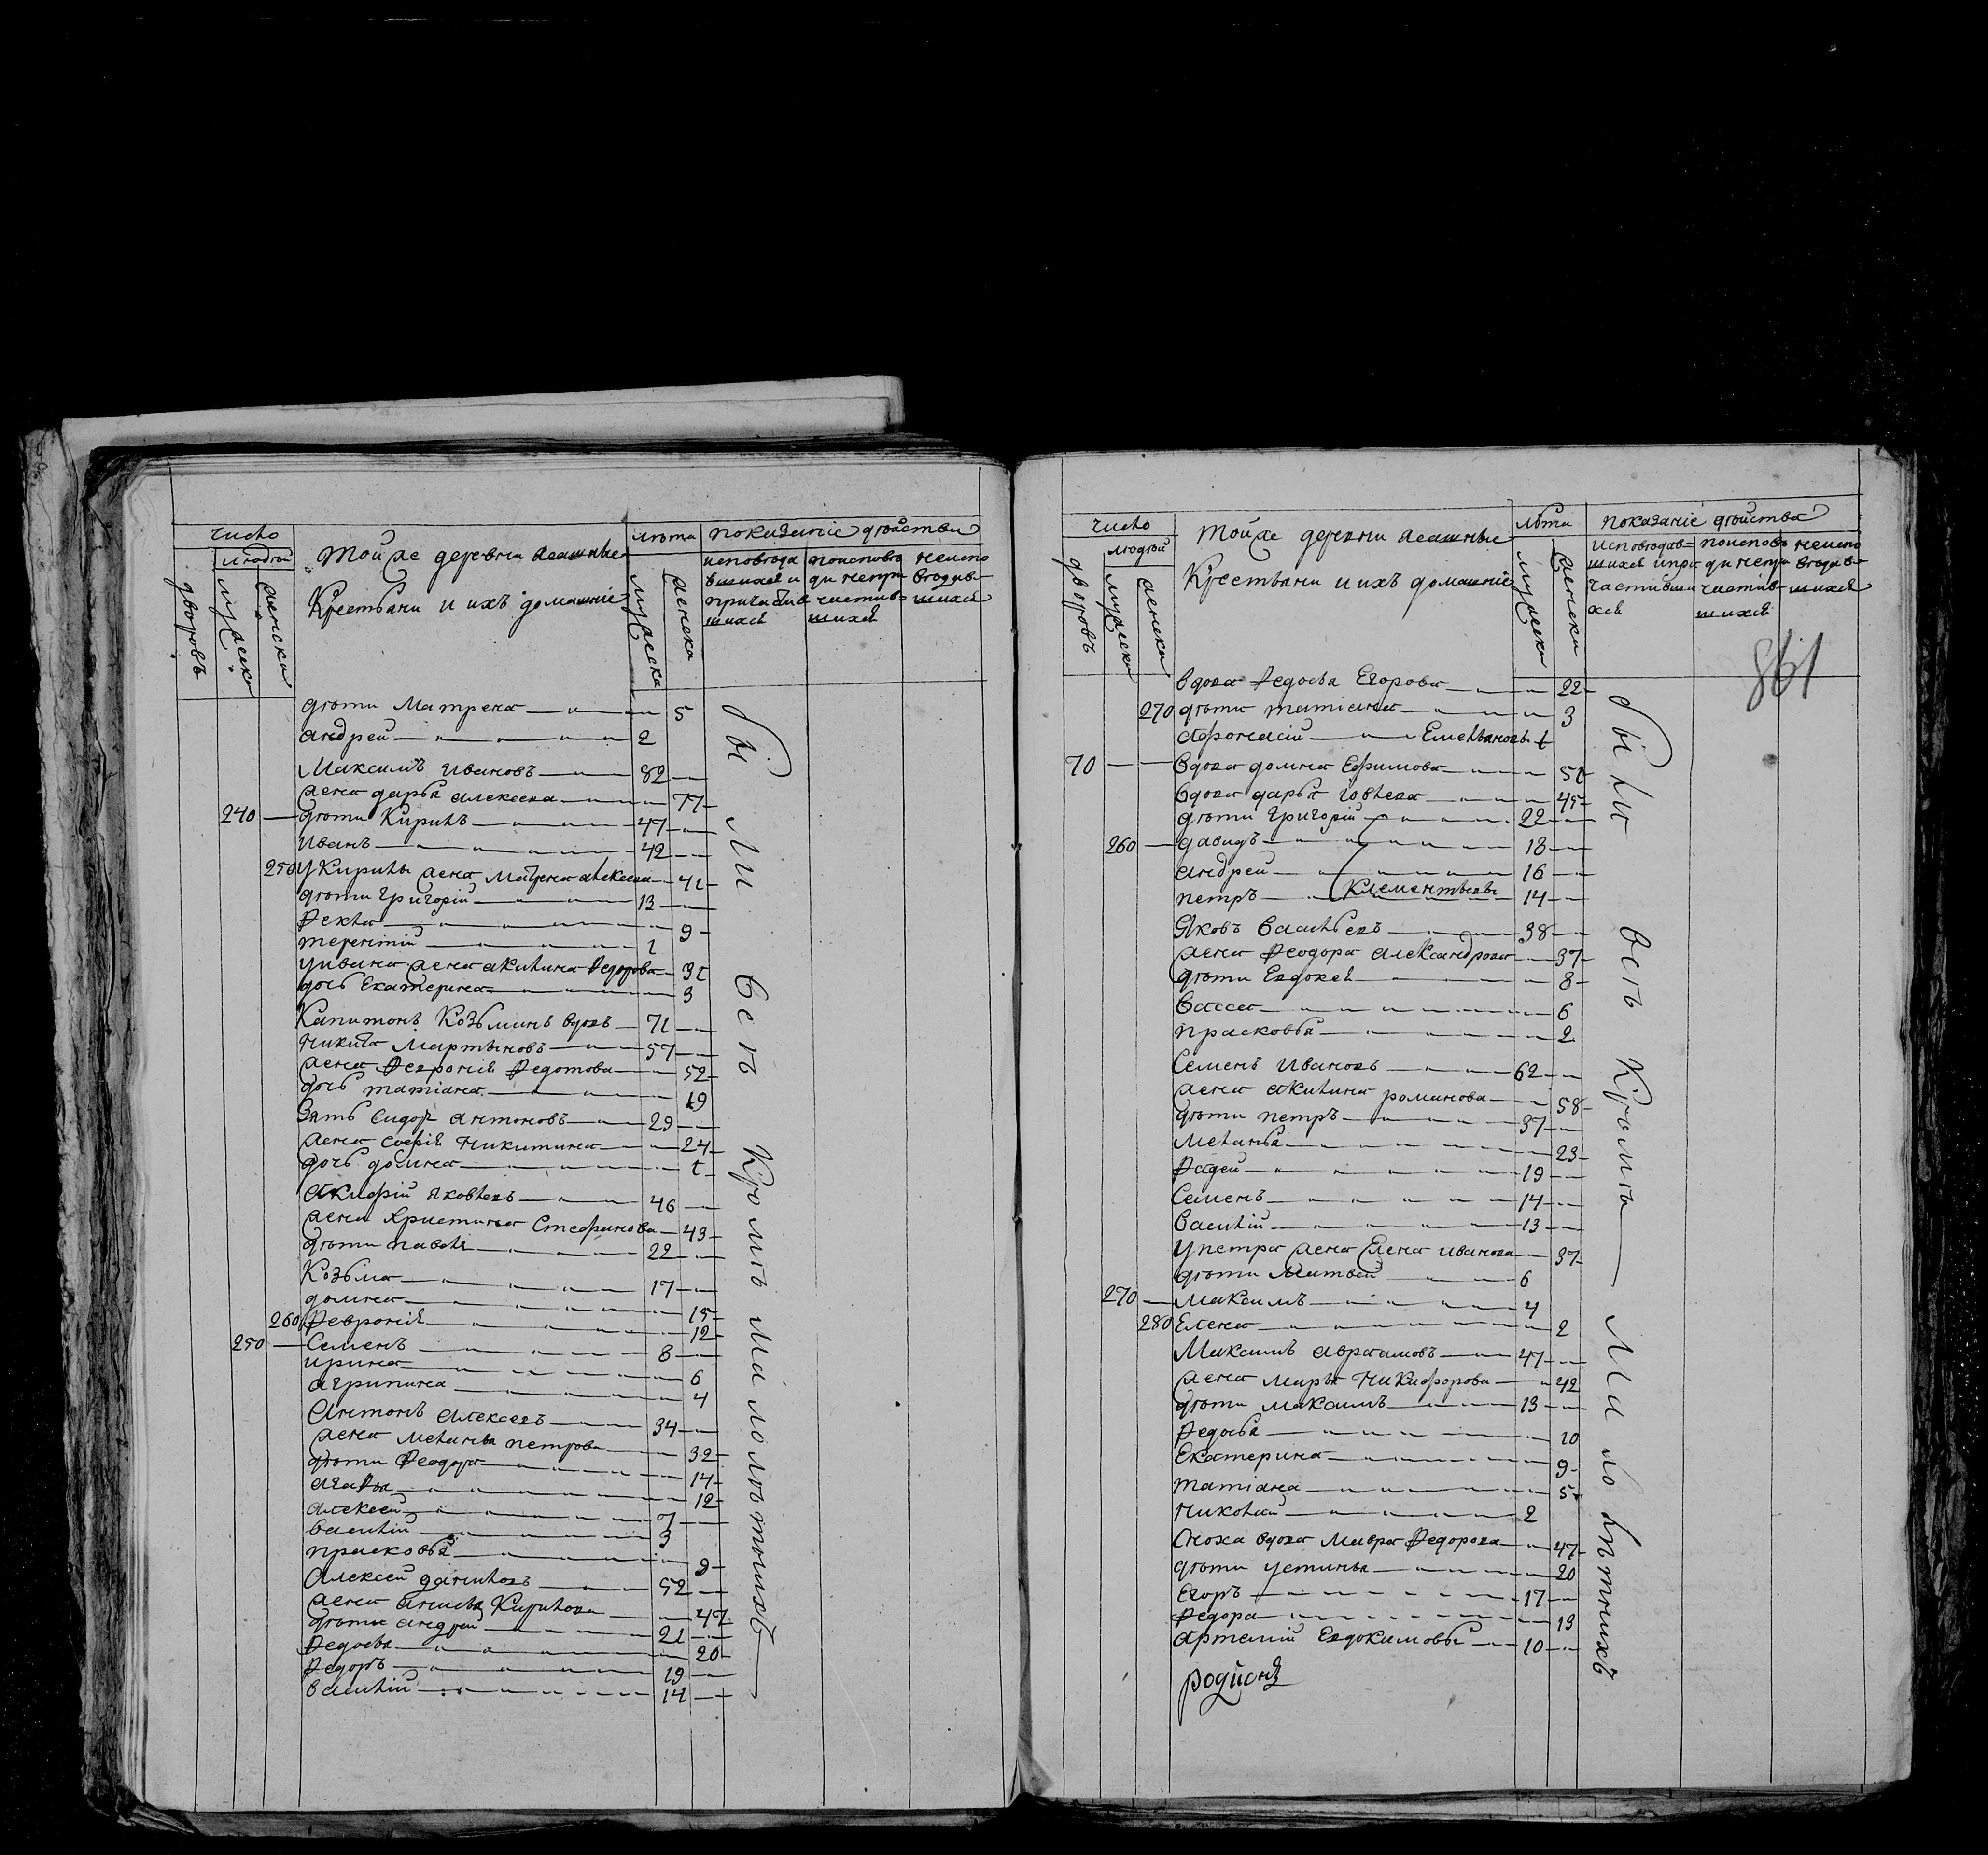 число
людей
дворовъ
мужеска
женска
Той же деревни ясашные
Крестьяни и ихъ домашніе
лѣта
мужеска
женска
показаніе дѣйства
исповѣда
вшихся и
причастив
шихся
поисповѣ
ди непри
частив-
шихся
неиспо
вѣдыв-
шихся
дѣти Матрена 5
андрей 2
Максимъ ивановъ 82
жена дарья алексеева 77
240 дѣти Кирилъ 47
иванъ 42
250 У Кирилы жена Матрена алексеева 41
дѣти Григорій 13
Фекла 9
терентій 1
у ивана жена акилина Федорова 31
дочь Екатерина 3
Капитонъ Козьминъ вдовъ 71
никита Мартыновъ 57
жена Феvронія Федотова 52
дочь татіана 19
Зять Сидоръ антоновъ 29
жена софія никитина 24
дочь домна 1
Акифій яковлевъ 46
жена Христинья Стефанова 43
дѣти павелъ 22
Козьма 17
домна 15
260 Феvронія 12
250 Семенъ 8
ирина 6
агрипина 4
Антонъ алексеевъ 34
жена меланья петрова 32
дѣти Феодора 14
агафья 12
алексей 7
василій 3
прасковья 9
Алексей даниловъ 52
жена анисья Кирилова 47
дѣти андрей 21
Федосья 20
Федоръ 19
василій 14
были всѣ кромѣ малолѣтнихъ
число
людей
дворовъ
мужеска
женска
Той же деревни ясашные
Крестьяни и ихъ домашніе
лѣта
мужеска
женска
показаніе дѣйства
исповѣдав=
шихся и при
частивши
хся
поисповѣ
ди непри
частив-
шихся
неиспо
вѣдав-
шихся
861
вдова Федосья Егорова 22
270 дѣти татіана 3
афонасій Емельяновы 1
70 вдова домна Ефимова 51
вдова дарья іовлева 45
дѣти Григорій 22
260 давидъ 18
андрей 16
петръ Клементьевы 14
Яковъ Васильевъ 38
жена Феодора александрова 37
дѣти Евдокея 8
васса 6
прасковья 2
Семенъ Ивановъ 62
жена акилина романова 58
дѣти петръ 37
меланья 23
Фадей 19
Семенъ 14
василій 13
у петра жена Елена иванова 37
дѣти Матвей 6
270 Максимъ 4
280 Елена 2
Максимъ авраамовъ 47
жена марья Никифорова 42
дѣти максимъ 13
Федосья 10
Екатерина 9
татіана 5
николай 2
Сноха вдова Мавра Федорова 47
дѣти устинья 20
Егоръ 17
Федора 13
Артемій Евдокимовы 10
были всѣ кромѣ малолѣтнихъ
родіонъ